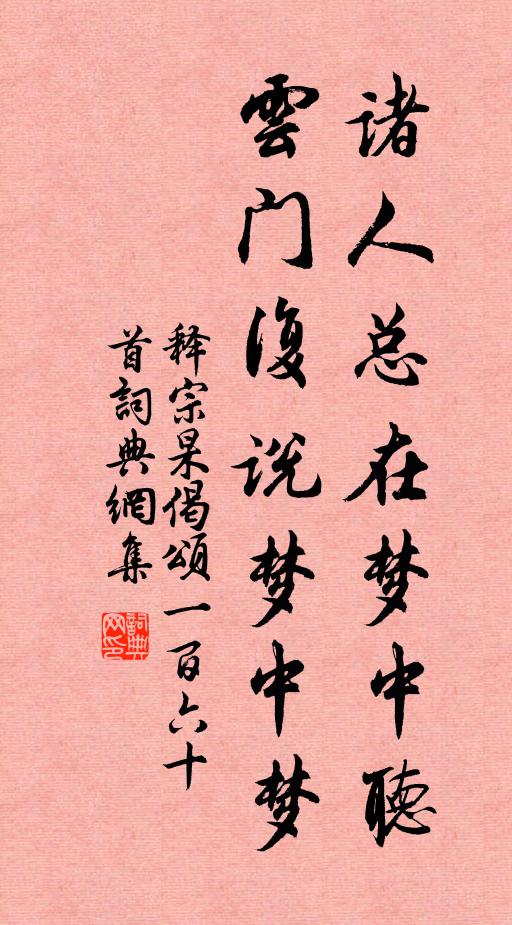 诸人总在梦中聽
雲门復说梦中梦
释宗杲偈頌一百六十
首詞典網集
詞典网印